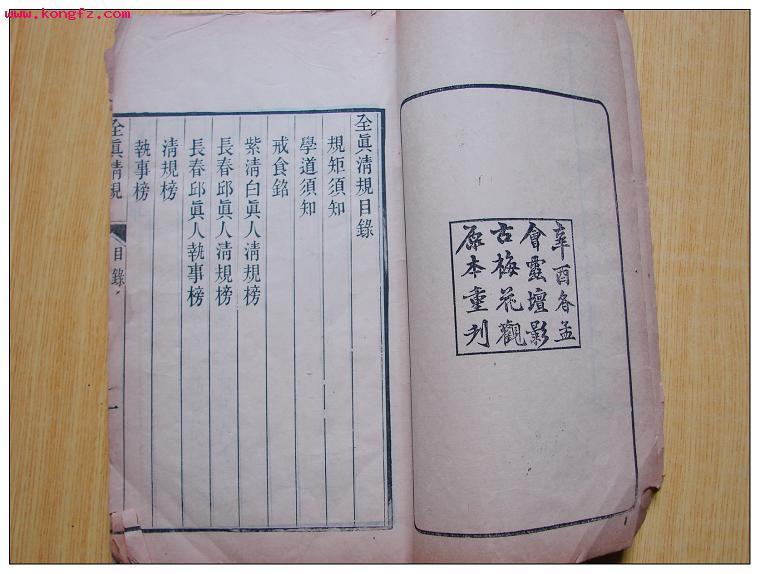 www.kongfz.com
辛酉冬孟
會靈壇影
古梅花觀
原本重刋
全眞清規目錄
規矩須知
學道須知
戒食銘
紫清白眞人清規榜
長春邱眞人清規榜
長春邱眞人執事榜
清規榜
執事榜
全眞清規
目錄
一